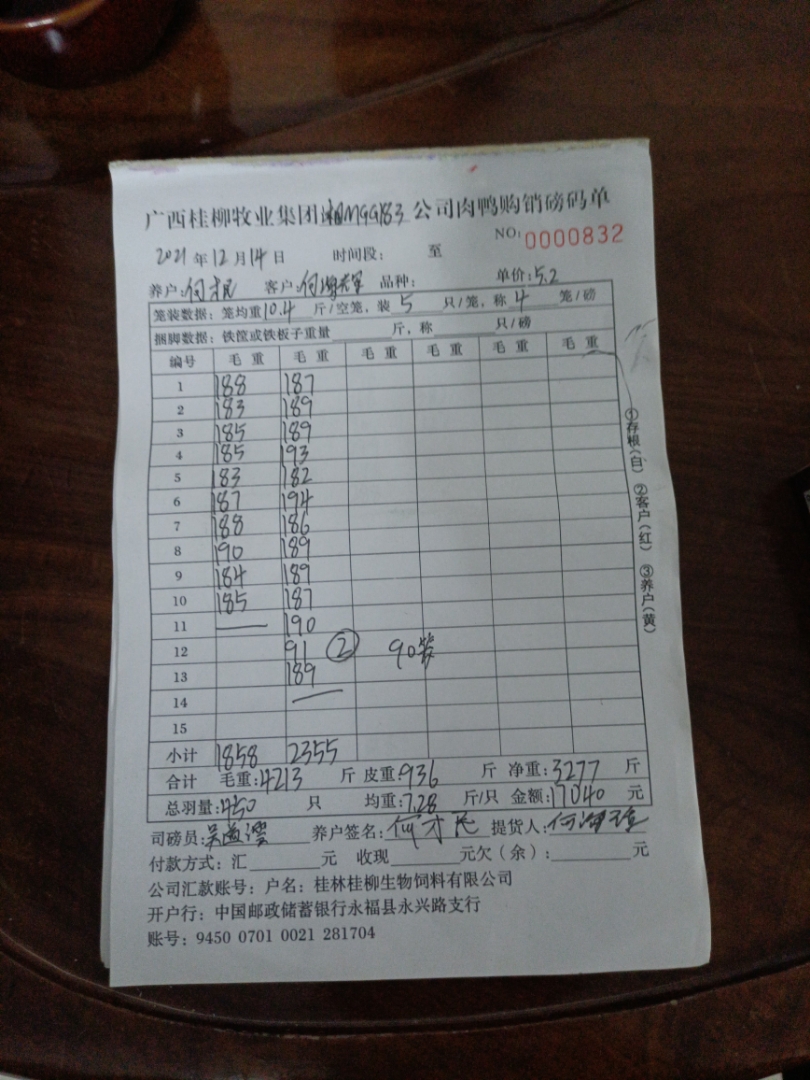 广西桂柳牧业集团湘M99183公司肉鸭购销磅码单
NO: 0000832
2021年12月14日 时间段: 至
养户:何才民 客户:何海辉 品种: 单价:5.2
笼装数据: 笼均重10.4斤/空笼, 装5只/笼, 称4笼/磅
捆脚数据: 铁筐或铁板子重量 斤, 称 只/磅
编号 毛重 毛重 毛重 毛重 毛重 毛重
1 188 187
2 183 189
3 185 189
4 185 193
5 183 182
6 187 194
7 188 186
8 190 189
9 184 189
10 185 187
11 — 190
12 91 ② 90笼
13 189
14 —
15
小计 1858 2355
合计 毛重:4213 斤 皮重:936 斤 净重:3277 斤
总羽量:450 只 均重:7.28 斤/只 金额:17040 元
司磅员: 养户签名:何才民 提货人:
付款方式: 汇 元 收现 元欠(余): 元
公司汇款账号: 户名: 桂林桂柳生物饲料有限公司
开户行: 中国邮政储蓄银行永福县永兴路支行
账号: 9450 0701 0021 281704
①存根(白) ②客户(红) ③养户(黄)